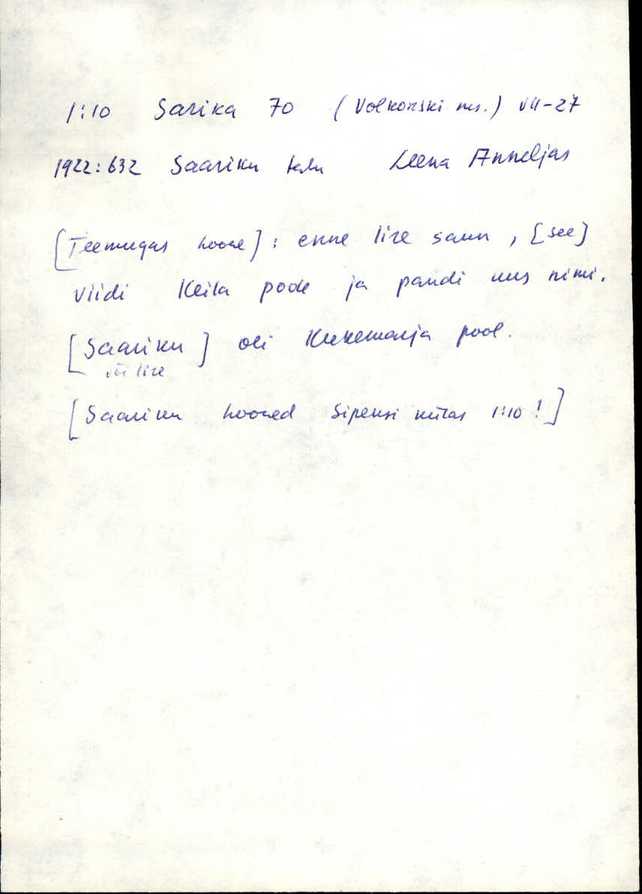 1:10 Sarika 70 (Volkonski ms.) VII-27
1922:632 Saariku talu Leena Anneljas
[Teemugas hoone]: enne lire saun, [see]
viidi Keila poole ja pandi uus nimi.
[Saariku] oli Kukemarja pool.
lire
[Saariku hooned Sipensi 1:10!]